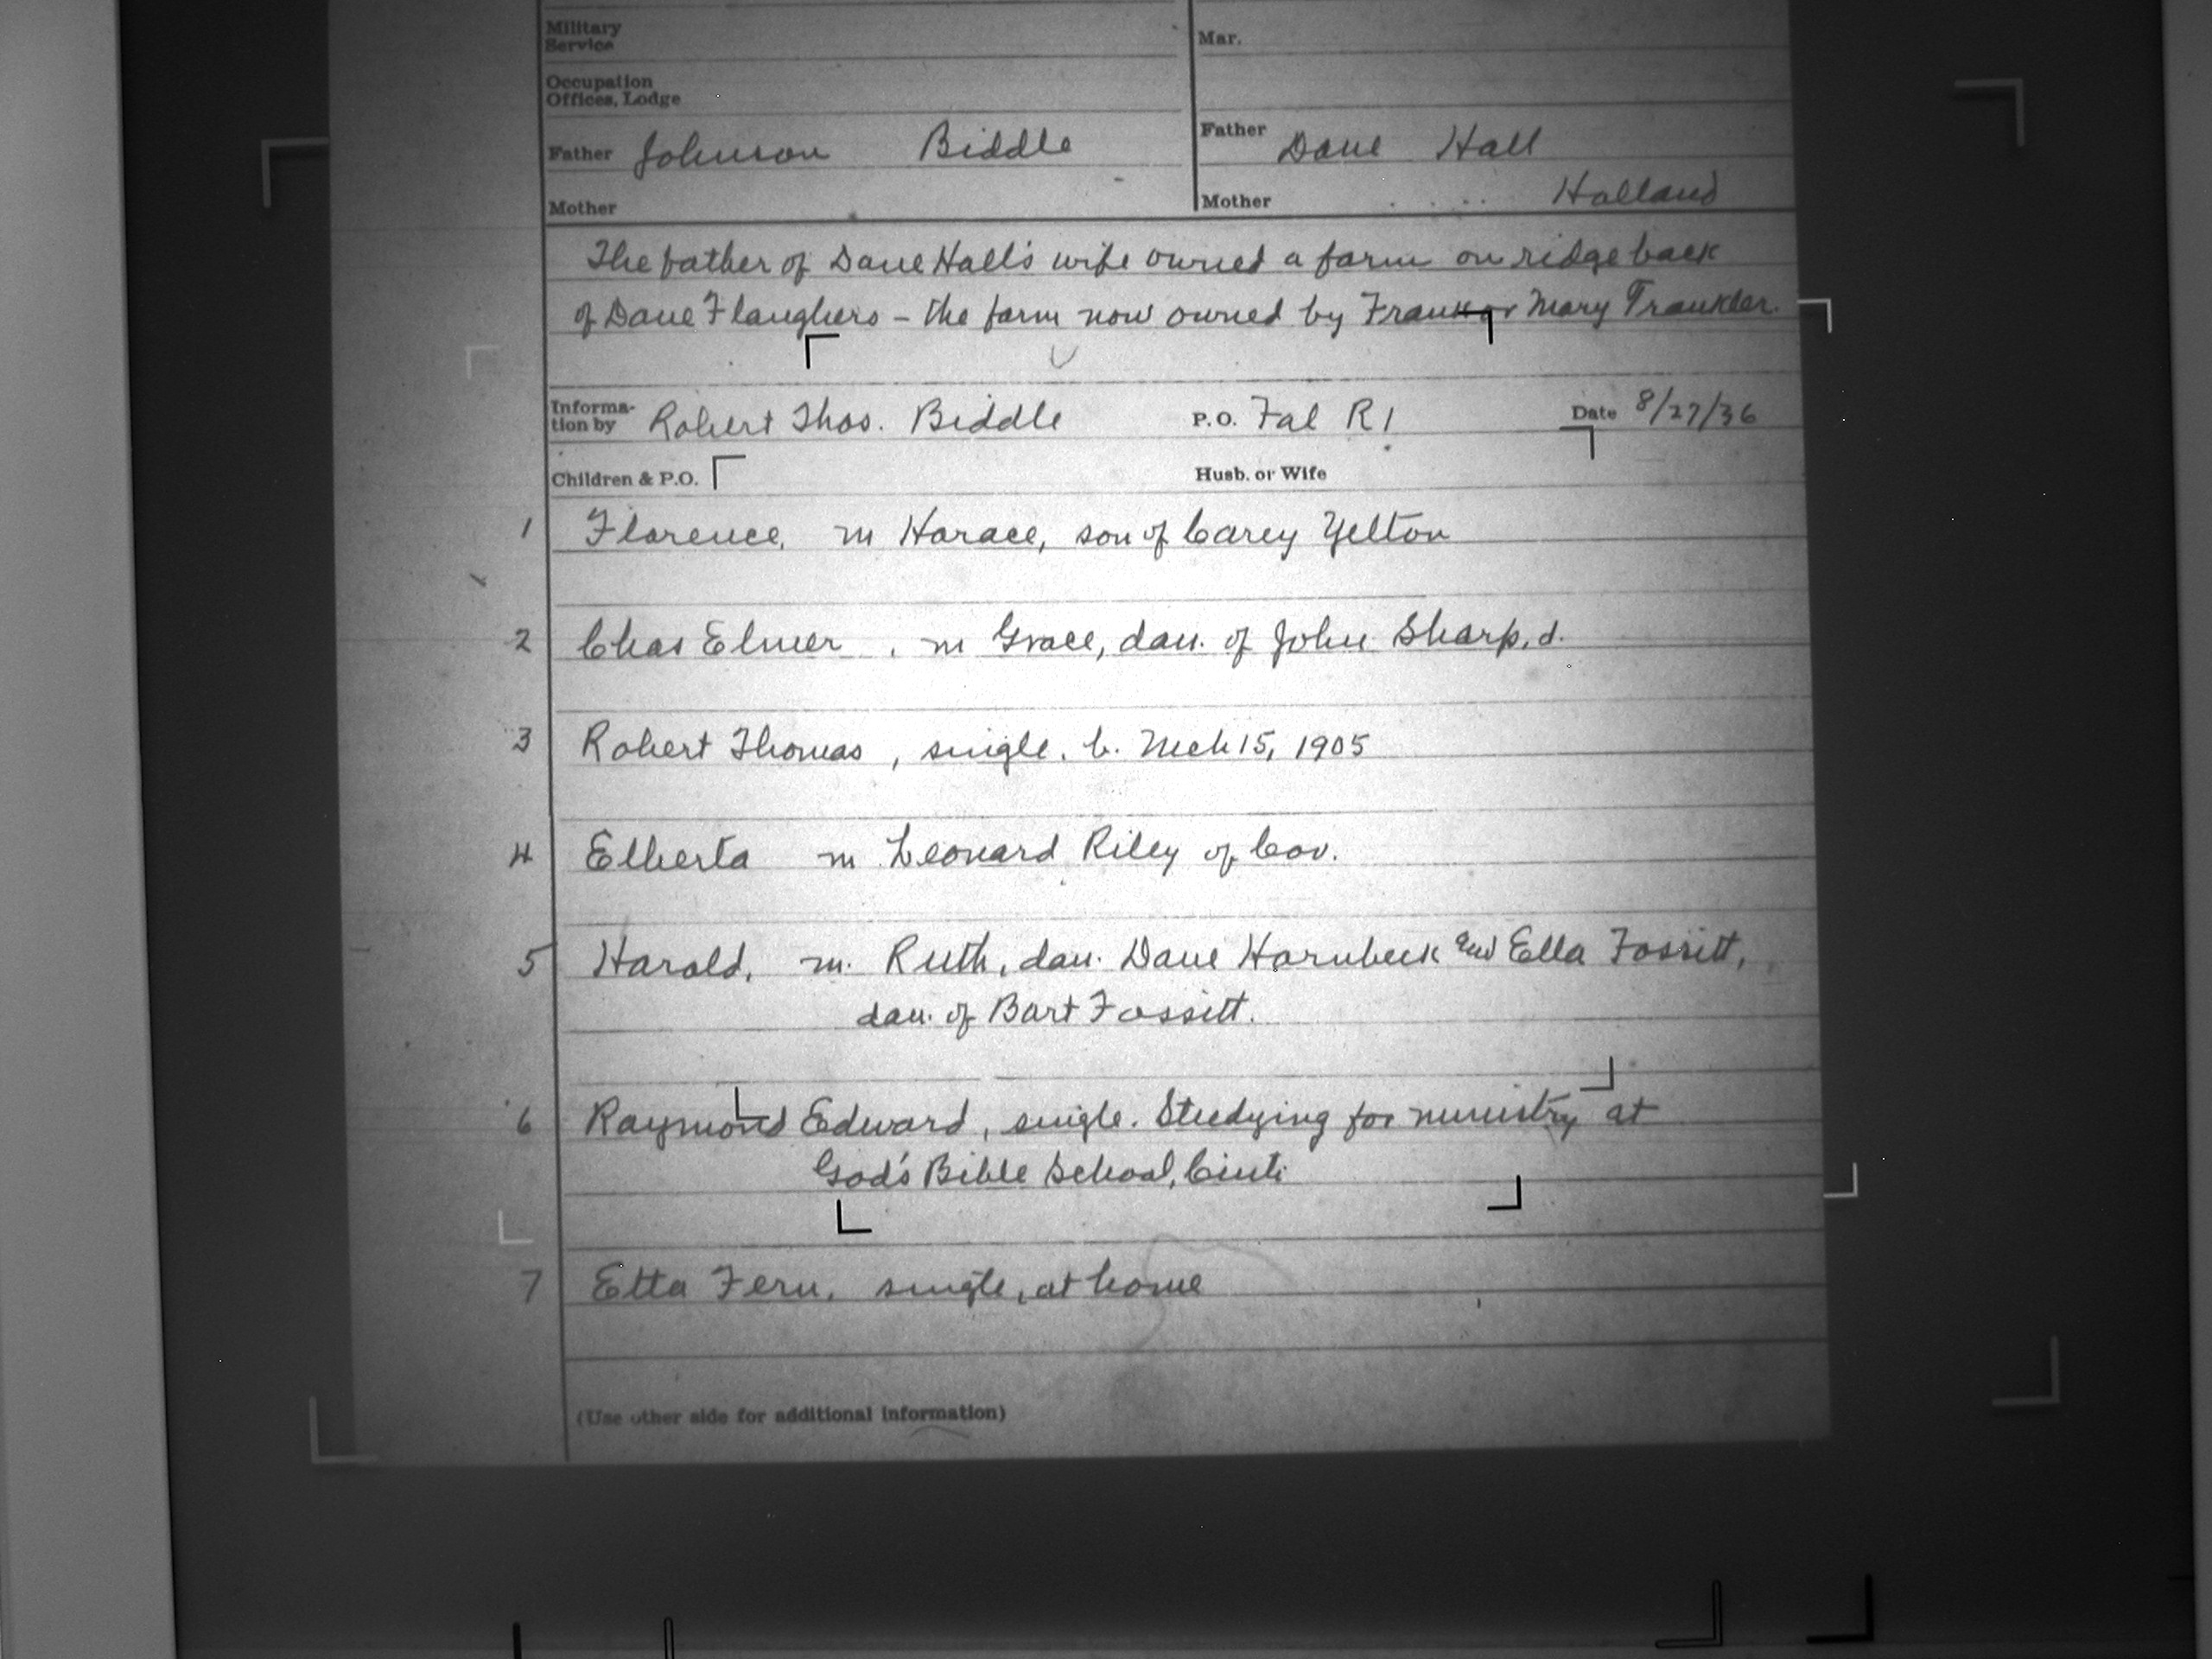 Military Service
Mar.
Occupation Offices, Lodge
Father Johnson Biddle
Father Dave Hall
Mother
Mother Holland
The father of Dave Hall's wife owned a farm on ridge back
of Dave Flaughers - the farm now owned by Frank or Mary
Informa-
tion by Robert Thos. Biddle P.O. Fal R1 Date 8/27/36
Children & P.O. Husb. or Wife
1 Florence, m Horace, son of Carey Yelton
2 Chas Elmer, m Grace, dau. of John Sharp, d.
3 Robert Thomas, single, b. Mch 15, 1905
4 Elberta m Leonard Riley of Cov.
5 Harold, m. Ruth, dau. Dave Hornbeek and Ella Fossitt,
dau. of Bart Fossitt.
6 Raymond Edward, single. Studying for ministry at
God's Bible School, Cinti
7 Etta Fern, single, at home
(Use other side for additional information)